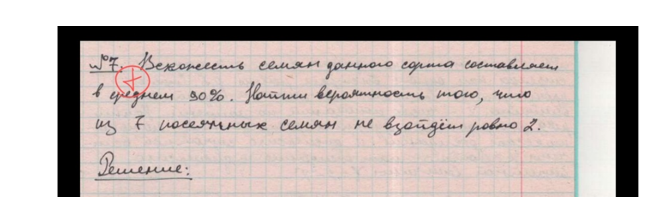 №7. Всхожесть семян данного сорта составляет
в среднем 90%. Найти вероятность того, что
из 7 посеянных семян не взойдёт ровно 2.
Решение: